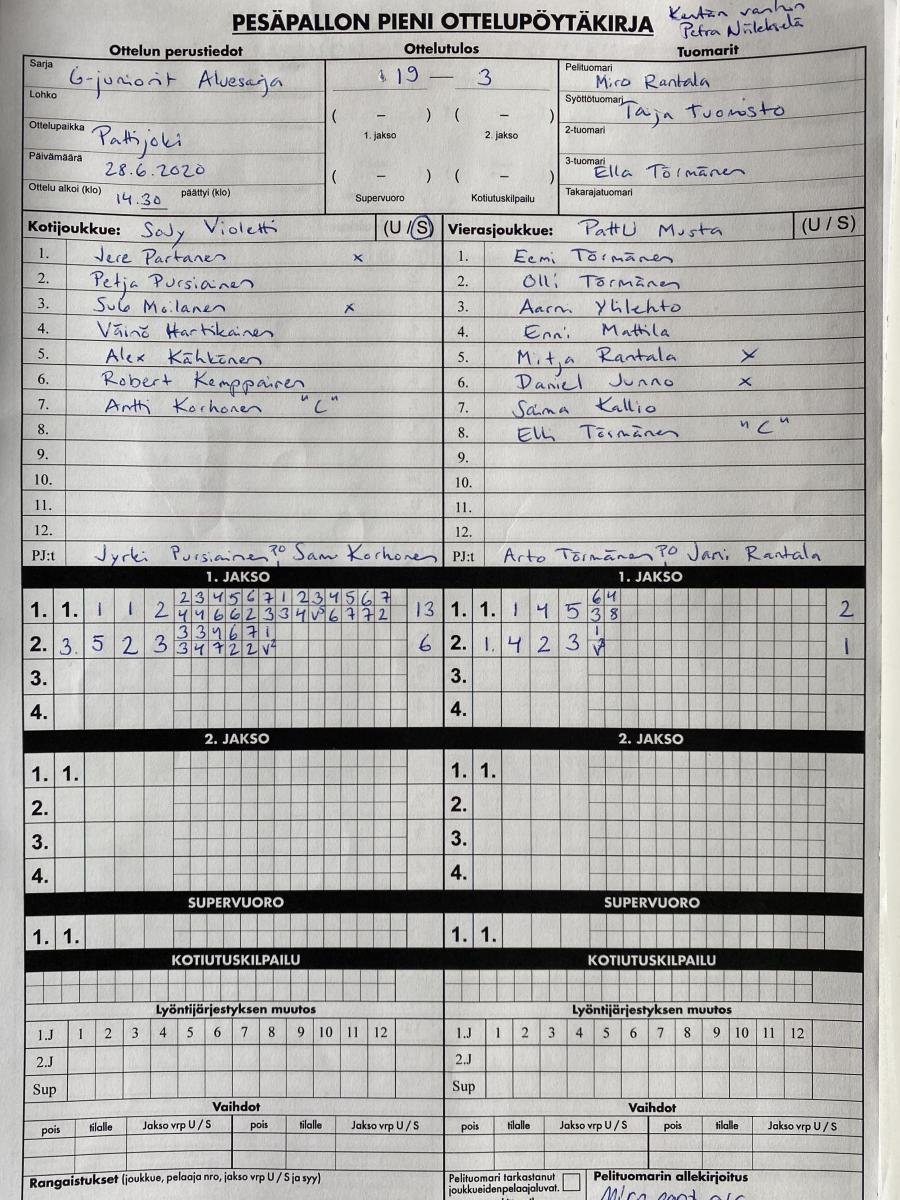 PESÄPALLON PIENI OTTELUPÖYTÄKIRJA
Kentän vanhin
Petra
Ottelun perustiedot
Ottelutulos
Tuomarit
Sarja G-juniorit Aluesarja
19 — 3
Pelituomari Miro Rantala
Lohko
( – ) ( – )
Syöttötuomari Taija Tuomisto
1. jakso 2. jakso
Ottelupaikka Pattijoki
2-tuomari
Päivämäärä 28.6.2020
( – ) ( – )
3-tuomari Ella Törmänen
Ottelu alkoi (klo) 14.30 päättyi (klo)
Supervuoro Kotiutuskilpailu
Takarajatuomari
Kotijoukkue: SoJy Violetti (U / S)
Vierasjoukkue: PattU Musta (U / S)
1. Jere Partanen x
1. Eemi Törmänen
2. Petja Pursiainen
2. Olli Törmänen
3. Sulo Moilanen x
3. Aarni Ylilehto
4. Väinö Hartikainen
4. Enni Mattila
5. Alex Kähkönen
5. Mitja Rantala x
6. Robert Kemppainen
6. Daniel Junno x
7. Antti Korhonen "C"
7. Saima Kallio
8.
8. Elli Törmänen "C"
9.
9.
10.
10.
11.
11.
12.
12.
PJ:t Jyrki Pursiainen, PO, Sam Korhonen
PJ:t Arto Törmänen PO, Jani Rantala
1. JAKSO
1. JAKSO
2 3 4 5 6 7 1 2 3 4 5 6 7
1. 1. 1 1 2 4 4 6 6 2 3 3 4 V⁵ 6 7 7 2 13
6 4
1. 1. 1 4 5 3 8 2
3 3 4 6 7 1
2. 3. 5 2 3 3 4 7 2 2 V² 6
1
2. 1. 4 2 3 V² 1
3.
3.
4.
4.
2. JAKSO
2. JAKSO
1. 1.
1. 1.
2.
2.
3.
3.
4.
4.
SUPERVUORO
SUPERVUORO
1. 1.
1. 1.
KOTIUTUSKILPAILU
KOTIUTUSKILPAILU
Lyöntijärjestyksen muutos
Lyöntijärjestyksen muutos
1.J 1 2 3 4 5 6 7 8 9 10 11 12
1.J 1 2 3 4 5 6 7 8 9 10 11 12
2.J
2.J
Sup
Sup
Vaihdot
Vaihdot
pois tilalle Jakso vrp U / S pois tilalle Jakso vrp U / S
pois tilalle Jakso vrp U / S pois tilalle Jakso vrp U / S
Rangaistukset (joukkue, pelaaja nro, jakso vrp U / S ja syy)
Pelituomari tarkastanut
joukkueidenpelaajaluvat.
Pelituomarin allekirjoitus